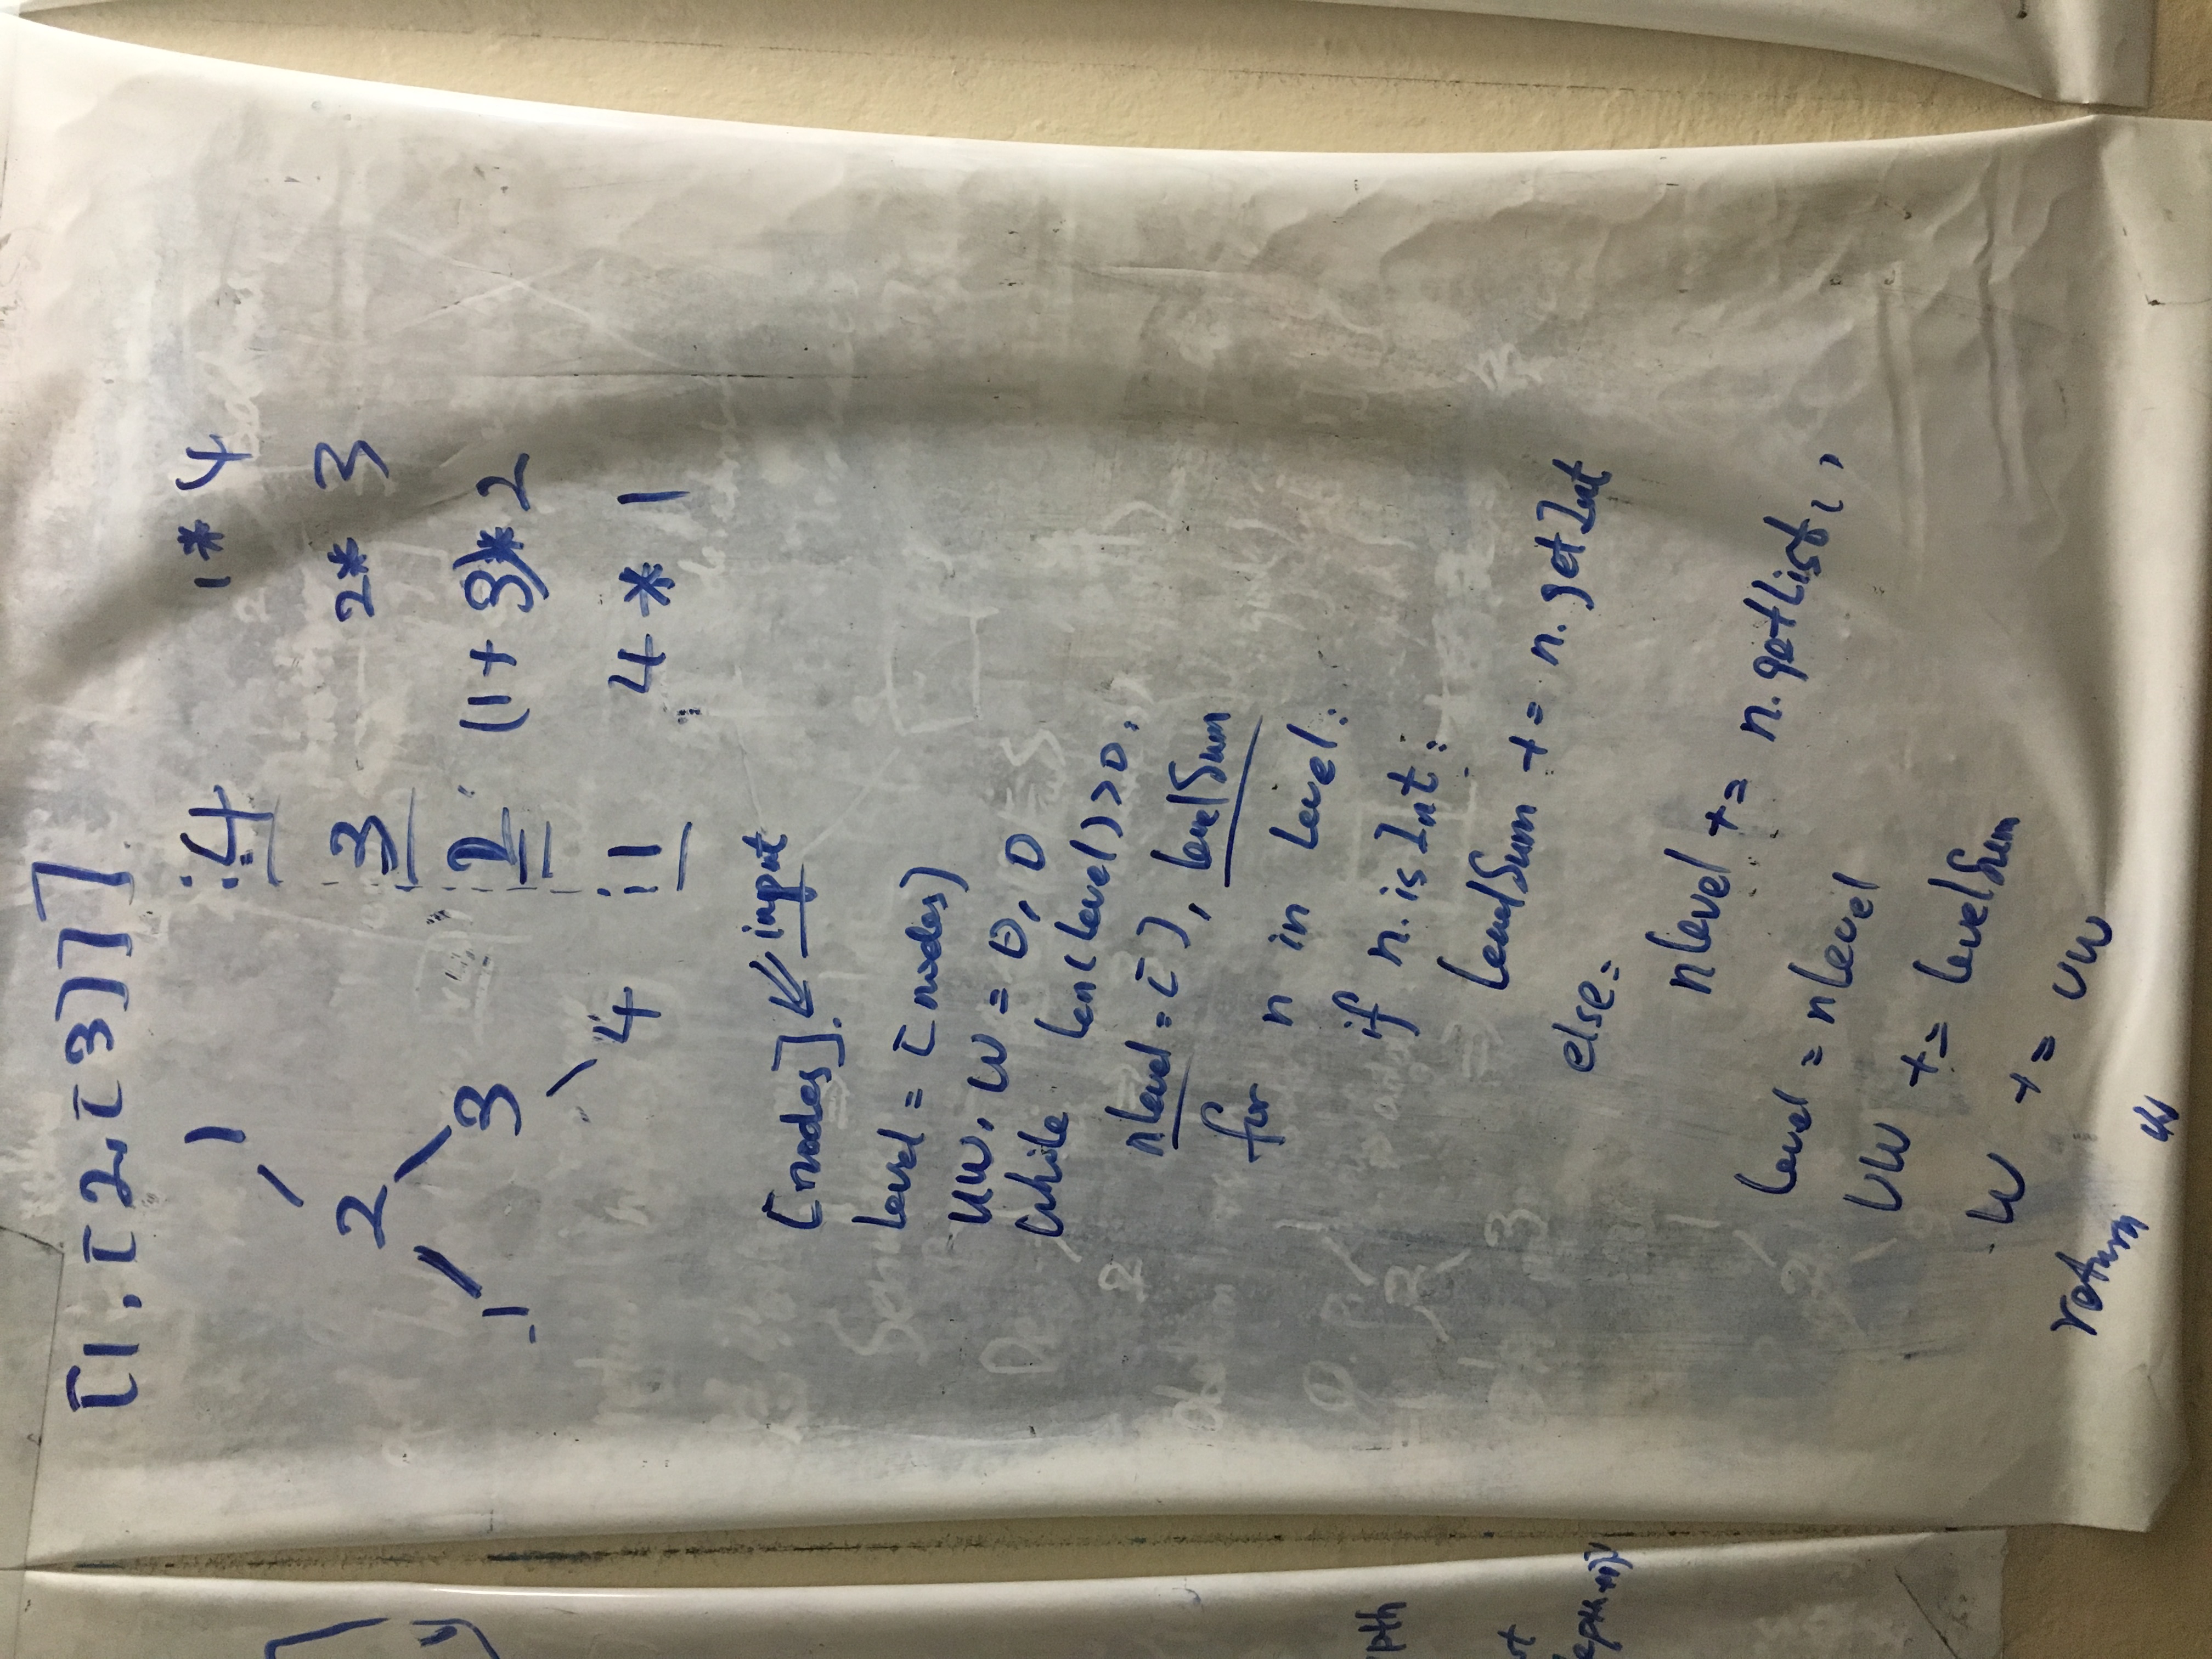 [1, [2, [3]]]
1 4 1 * 4
2 3 2 * 3
1 3 2 (1 + 3) * 2
4 1 4 * 1
[nodes]. input
level = [nodes]
UW, W = 0, 0
while len(level) > 0:
nlevel = [], levelSum
for n in level:
if n.isInt:
levelSum += n.getInt
else:
nlevel += n.getList()
level = nlevel
UW += levelSum
W += UW
return W
pth
st